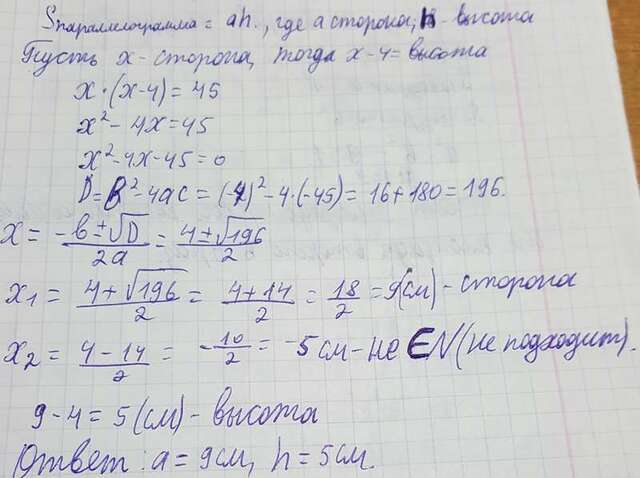 Sпараллелограмма = ah., где a сторона, h - высота
Пусть x - сторона, тогда x-4 = высота
x·(x-4) = 45
x² - 4x = 45
x² - 4x - 45 = 0
D = b² - 4ac = (-4)² - 4·(-45) = 16 + 180 = 196.
x = (-b ± √D)/2a = (4 ± √196)/2
x₁ = (4 + √196)/2 = (4 + 14)/2 = 18/2 = 9(см) - сторона
x₂ = (4 - 14)/2 = -10/2 = -5 см - не ∈ N (не подходит).
9 - 4 = 5 (см) - высота
Ответ: a = 9см, h = 5см.